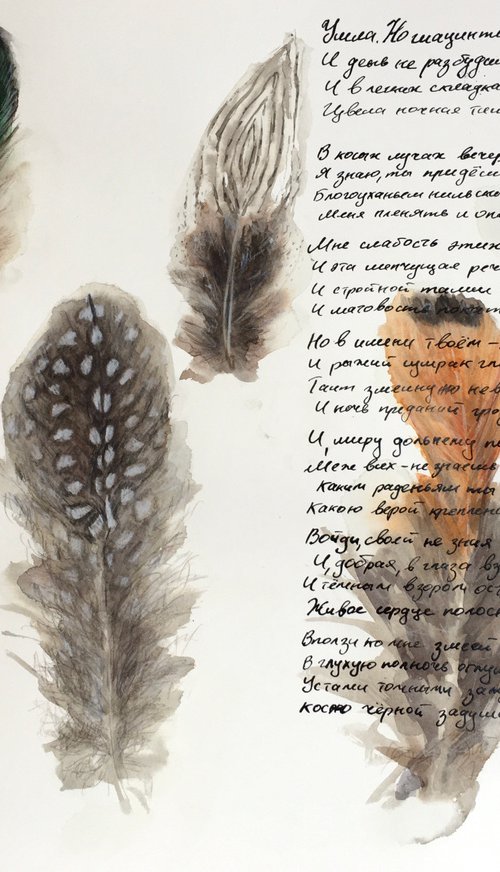 Ушла. Но гиацинт
И день не разбудил
И в легких складка
Цвела ночная ти
В косых лучах вечер
Я знаю, ты придёш
Благоуханьем нильск
Меня пленять и оп
Мне слабость этих
И эта шепчущая реч
И стройной талии
И матовость покат
Но в имени твоём –
И рыжий сумрак гл
Таит змеиную нев
И ночь преданий гро
И, миру дольнему п
Меж всех – не знаешь
Каким раденьям ты
Какою верой крещен
Войди, своей не зная
И, добрая, в глаза вз
И тёмным взором ост
Живое сердце полос
Вползи ко мне змеёй
В глухую полночь оглуш
Устами томными зам
Косою чёрной задуш